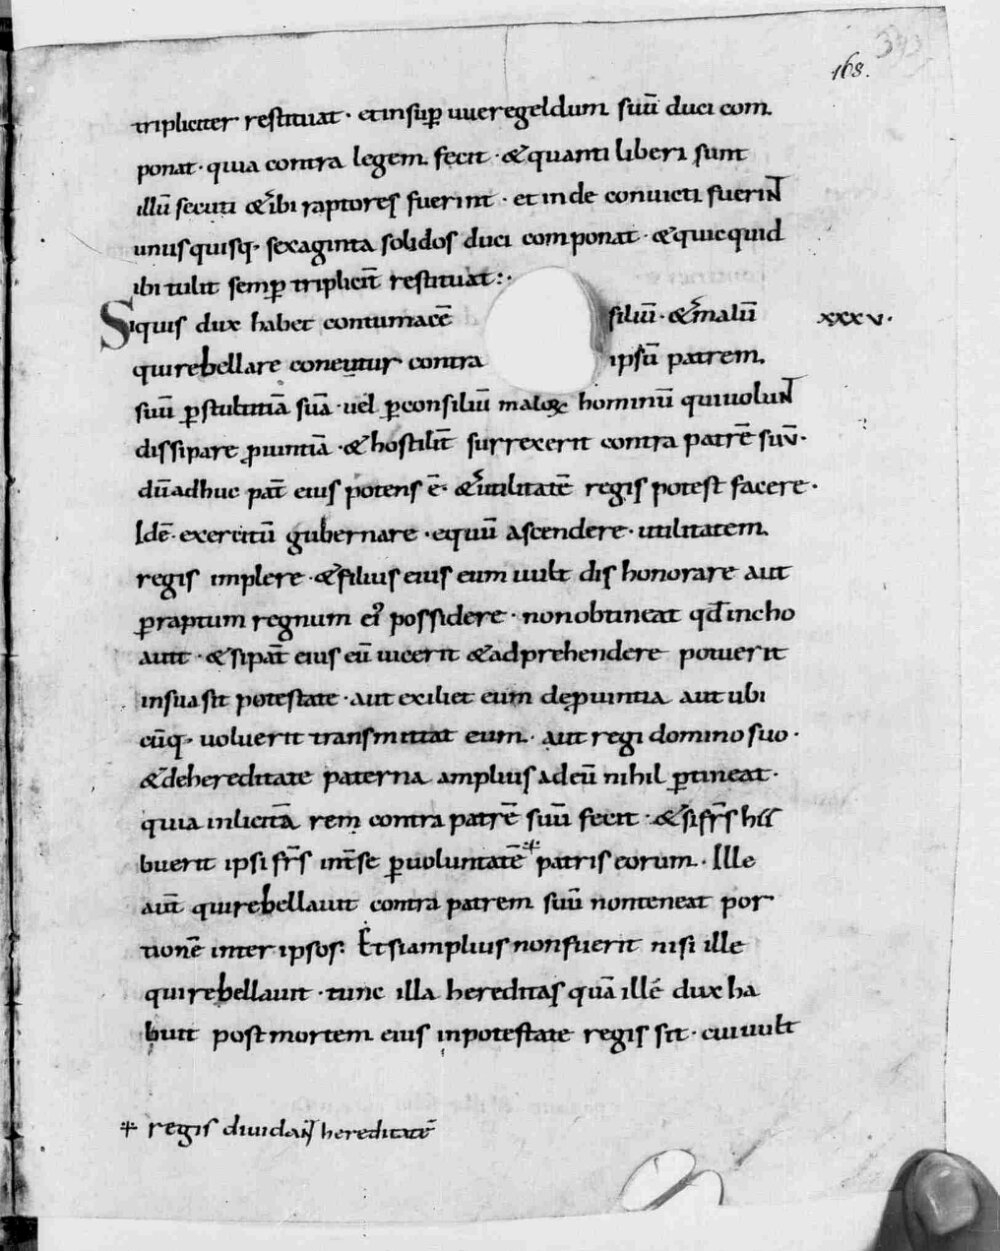 343
168.
tripliciter restituat · et insup̄ uueregeldum suū duci com
ponat · quia contra legem fecit · & quanti liberi sunt
illū secuti & ibi raptores fuerint · et inde conuicti fuerint
unusquisq· sexaginta solidos duci componat · & quicquid
ibi tulit semp̄ triplicit̄ restituat :·
Siquis dux habet contumacē filiū · & malū xxxv.
qui rebellare conetur contra ipsū patrem.
suū p̱ stultitiā suā · uel p̱ consiliū maloꝝ hominū qui uolunt
dissipare ꝓuintiā · & hostilit̄ surrexerit contra patrē suū ·
dū adhuc pat̄ eius potens ē · & utilitatē regis potest facere ·
Idē · exercitū gubernare · equū ascendere · utilitatem
regis implere · & filius eius eum uult dishonorare aut
p̱ raptum regnum eiꝰ possidere · non obtineat qđ incho
auit · & si pat̄ eius eū uicerit & adprehendere potuerit
in sua sit potestate · aut exiliet eum de ꝓuintia aut ubi
cūq· uoluerit transmittat eum · aut regi domino suo ·
& de hereditate paterna amplius ad eū nihil p̱tineat ·
quia inlicitā rem contra patrē suū fecit · & si fr̄s ha
buerit ipsi fr̄s int̄ se p̱ uoluntatē + patris eorum · Ille
aut̄ qui rebellauit contra patrem suū non teneat por
tionē inter ipsos. Et si amplius non fuerit nisi ille
qui rebellauit · tunc illa hereditas quā ille dux ha
buit post mortem eius in potestate regis sit · cui uult
+ regis diuidant hereditatē